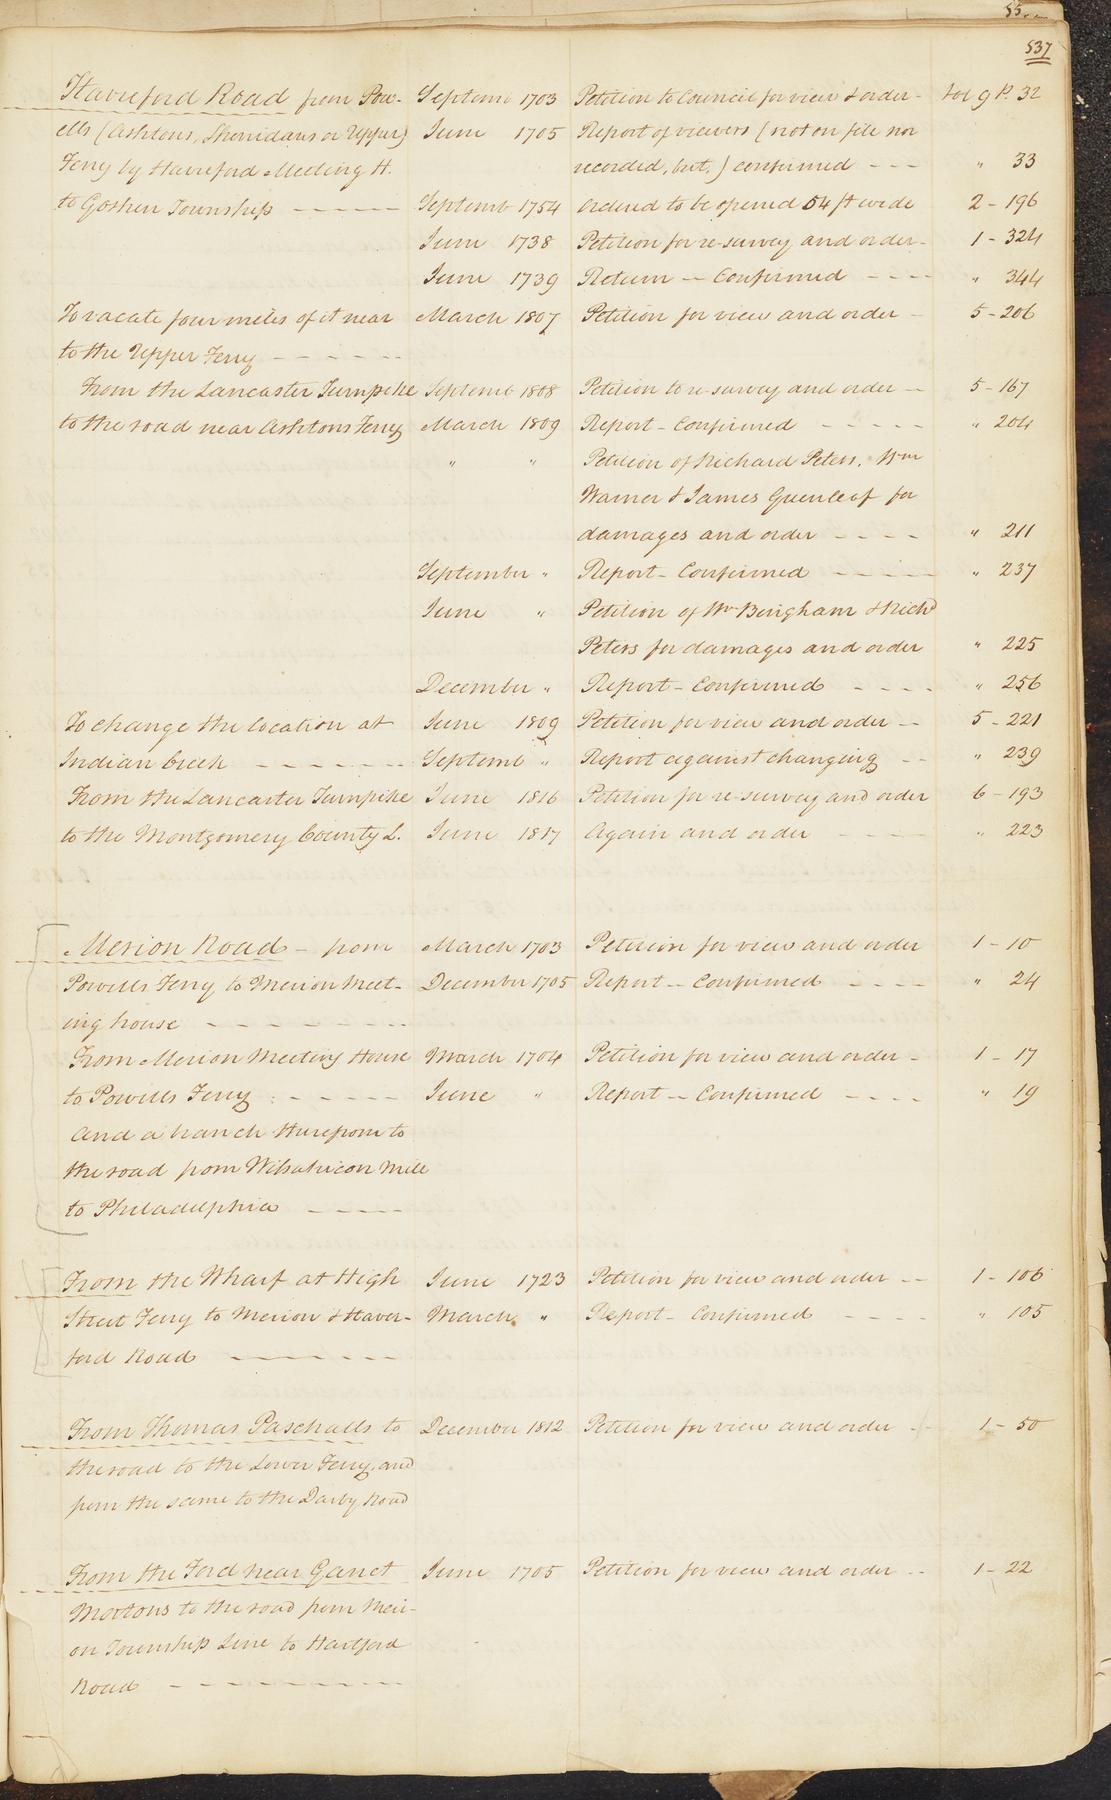 55
537
Haverford Road from Pow- Septemr 1703 Petition to Council for view & order - Vol 9 P. 32
ells (Ashtons, Sheridans or Upper) June 1705 Report of viewers (not on file nor
Ferry by Haverford Meeting H. recorded, but,) confirmed - - - " 33
to Goshen Township - - - - - Septemb 1754 Ordered to be opened 54 ft wide 2 - 196
June 1738 Petition for re-survey and order - 1 - 324
June 1739 Return -- Confirmed - - - - " 344
To vacate four miles of it near March 1807 Petition for view and order - 5 - 206
to the Upper Ferry - - - - - -
From the Lancaster Turnpike Septemb 1808 Petition to re-survey and order -- 5 - 167
to the road near Ashtons Ferry March 1809 Report - Confirmed - - - - - " 204
" " Petition of Richard Peters, Wm
Warner & James Greenleaf for
damages and order - - - - " 211
September " Report - Confirmed - - - - - " 237
June " Petition of Wm Bingham & Richd
Peters for damages and order " 225
December " Report - Confirmed - - - - " 256
To change the location at June 1809 Petition for view and order -- 5 - 221
Indian Creek - - - - - - - Septemb " Report against changing - - " 239
From the Lancaster Turnpike June 1816 Petition for re-survey and order 6 - 193
to the Montgomery County L. June 1817 Again and order - - - - " 223
Merion Road - from March 1703 Petition for view and order 1 - 10
Powells Ferry to Merion Meet- December 1705 Report -- Confirmed - - - - " 24
ing house - - - - - - - -
From Merion Meeting House March 1704 Petition for view and order - 1 - 17
to Powells Ferry - - - - - June " Report -- Confirmed - - - - " 19
And a branch therefrom to
the road from Wissahicon Mill
to Philadelphia - - - - -
From the Wharf at High June 1723 Petition for view and order -- 1 - 106
Street Ferry to Merion & Haver- March " Report - Confirmed - - - - " 105
ford Road - - - - - - -
From Thomas Paschalls to December 1812 Petition for view and order - - 1 - 50
the road to the Lower Ferry, and
from the same to the Darby Road
From the Ford near Garret June 1705 Petition for view and order - - 1 - 22
Mortons to the road from Meri-
on Township Line to Hartford
Road - - - - - - - - -